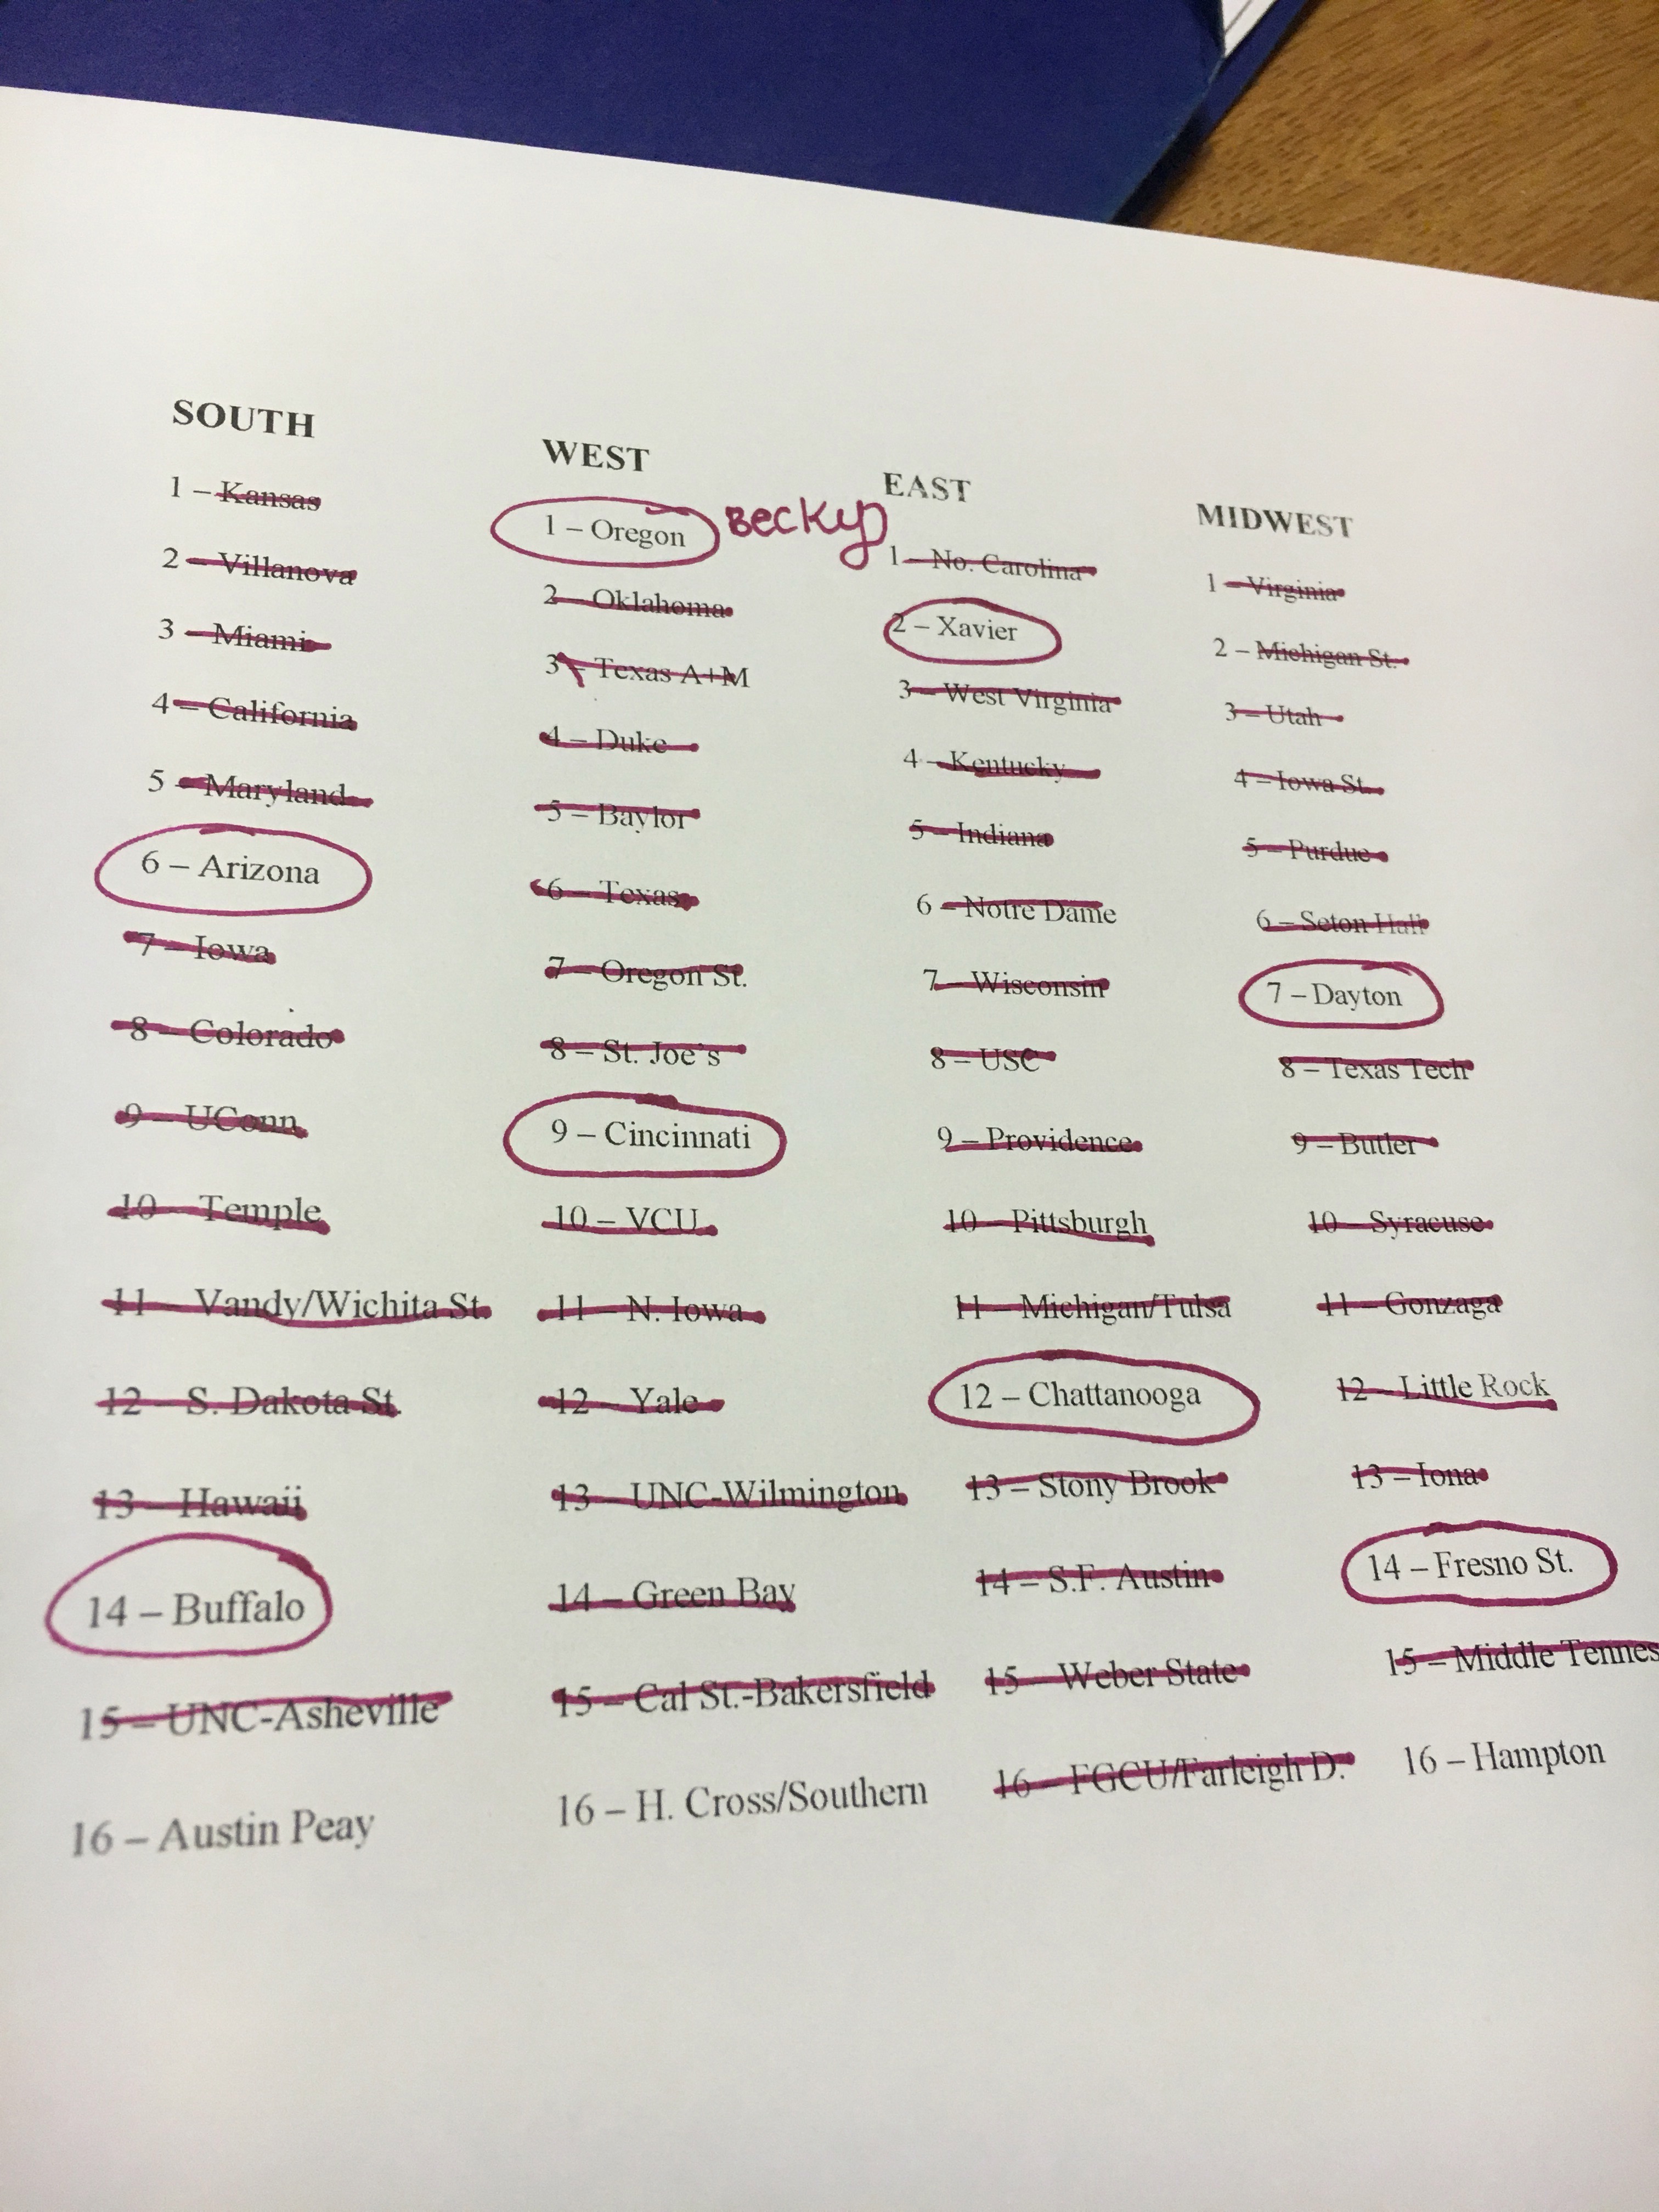 SOUTH
1 – Kansas
2 – Villanova
3 – Miami
4 – California
5 – Maryland
6 – Arizona
7 – Iowa
8 – Colorado
9 – UConn
10 – Temple
11 – Vandy/Wichita St.
12 – S. Dakota St.
13 – Hawaii
14 – Buffalo
15 – UNC-Asheville
16 – Austin Peay
WEST
1 – Oregon Becky
2 – Oklahoma
3 – Texas A+M
4 – Duke
5 – Baylor
6 – Texas
7 – Oregon St.
8 – St. Joe's
9 – Cincinnati
10 – VCU
11 – N. Iowa
12 – Yale
13 – UNC-Wilmington
14 – Green Bay
15 – Cal St.-Bakersfield
16 – H. Cross/Southern
EAST
1 – No. Carolina
2 – Xavier
3 – West Virginia
4 – Kentucky
5 – Indiana
6 – Notre Dame
7 – Wisconsin
8 – USC
9 – Providence
10 – Pittsburgh
11 – Michigan/Tulsa
12 – Chattanooga
13 – Stony Brook
14 – S.F. Austin
15 – Weber State
16 – FGCU/Farleigh D.
MIDWEST
1 – Virginia
2 – Michigan St.
3 – Utah
4 – Iowa St.
5 – Purdue
6 – Seton Hall
7 – Dayton
8 – Texas Tech
9 – Butler
10 – Syracuse
11 – Gonzaga
12 – Little Rock
13 – Iona
14 – Fresno St.
15 – Middle Tennes
16 – Hampton